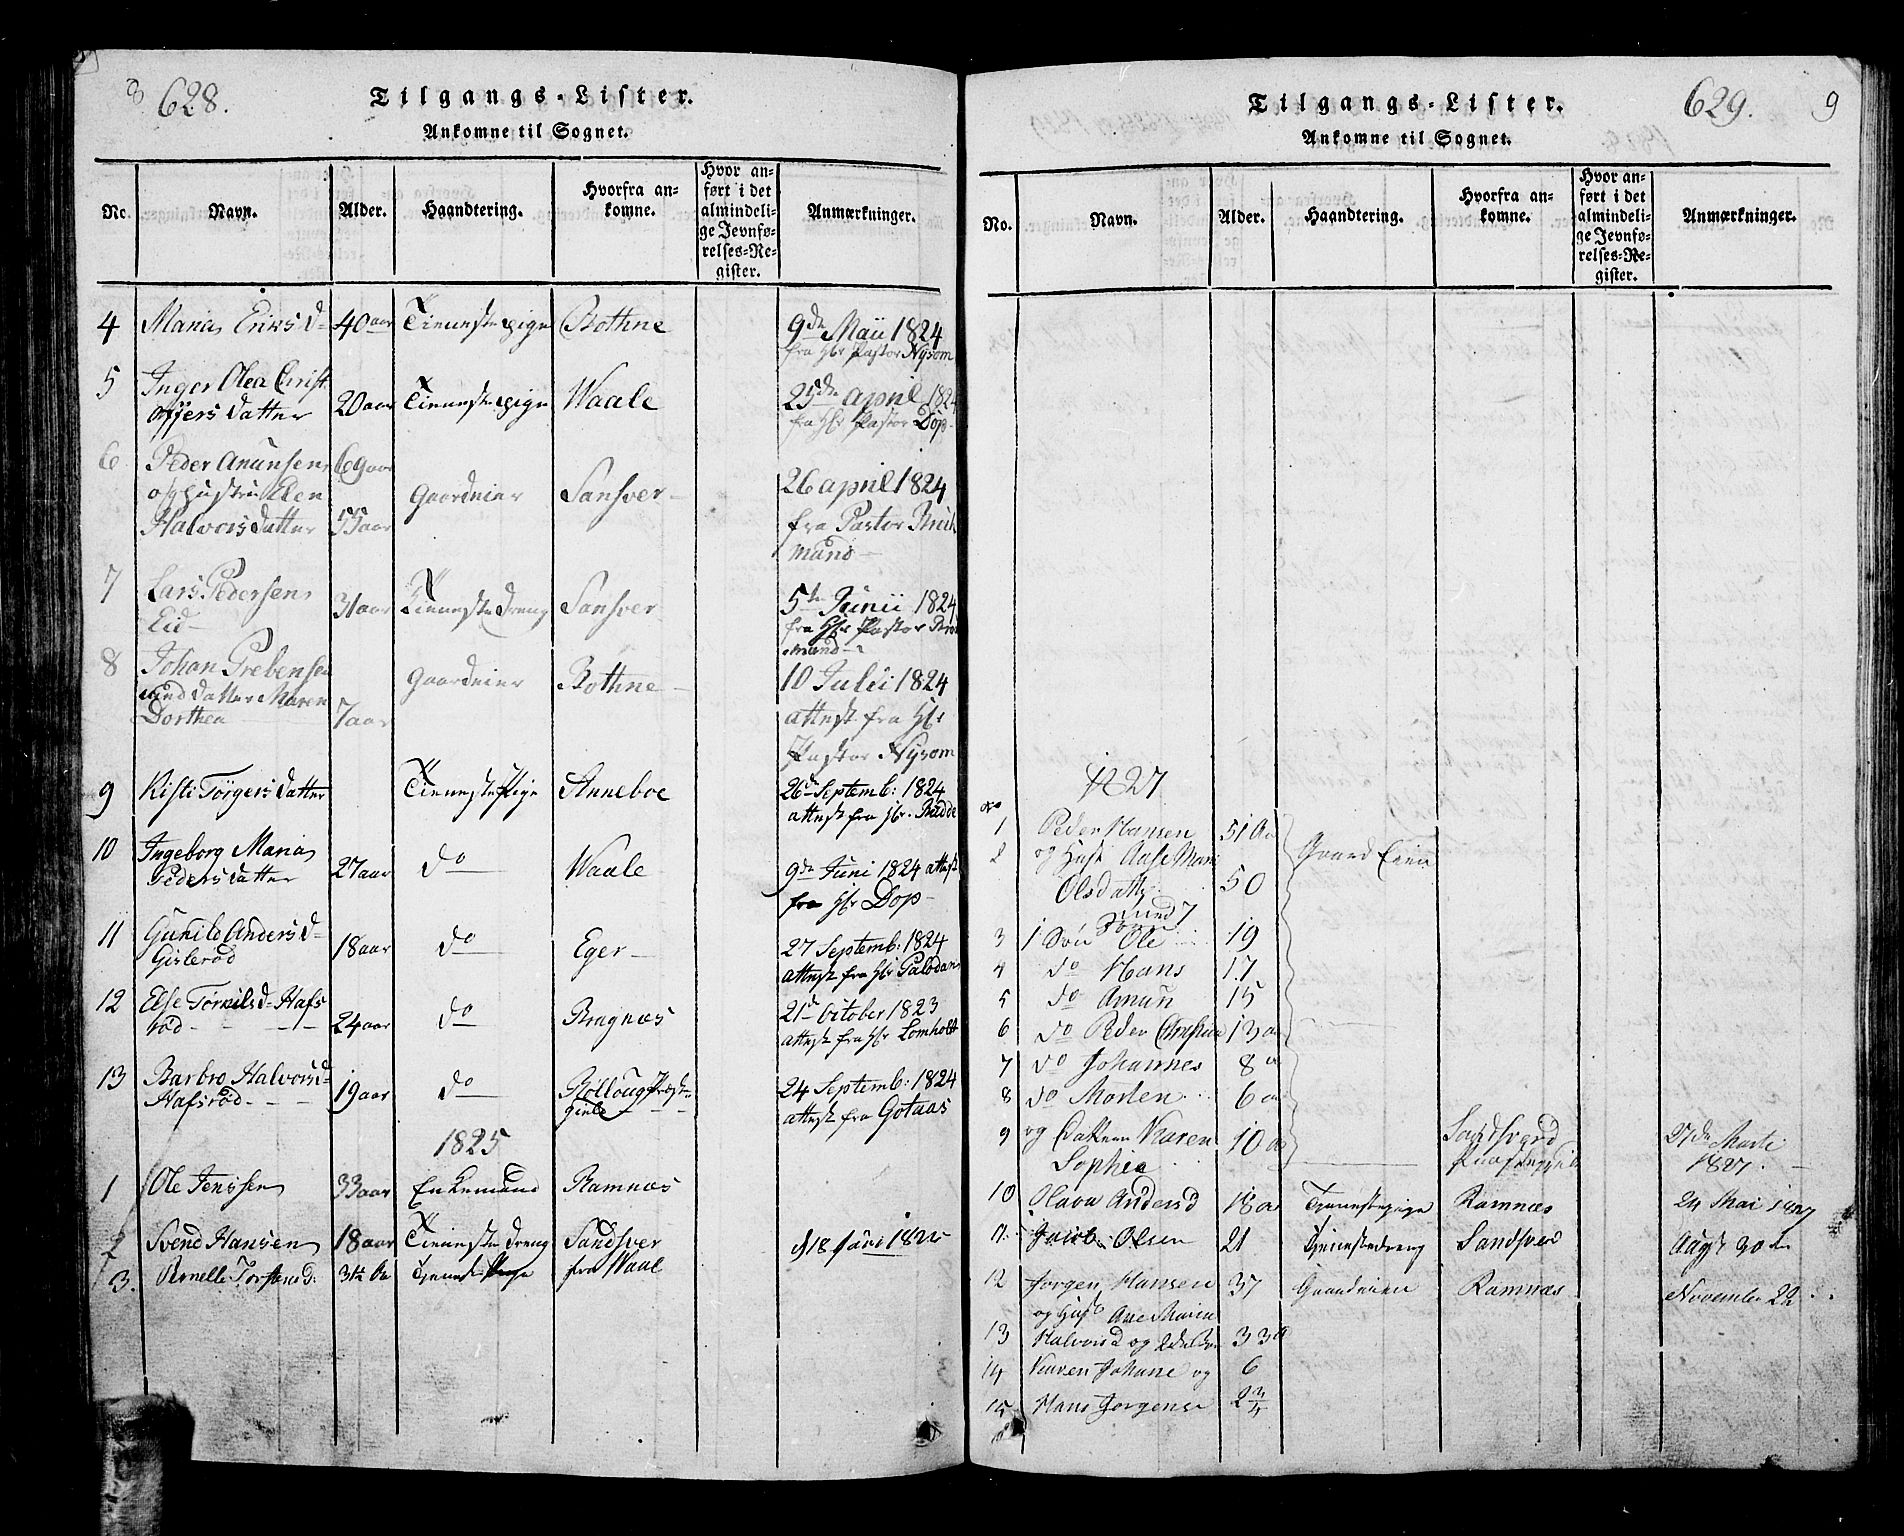 8 628.
Tilgangs-Lister.
Ankomne til Sognet.
No. Navn. Alder. Haandtering. Hvorfra an= komne. Hvor an= ført i det almindeli= ge Jevnfø= relses=Re= gister. Anmærkninger.
4 Maria Eriks d- 40 aar Tienestepige Bothne 9de Maii 1824
fra Hr Pastor Nysom
5 Inger Olea Christ
offers datter 20 aar Tienestepige Waale 25de april 1824
fra Hr Pastor Dop-
6 Peder Anunsen 69 aar
og hustru Elen Gaardeier Sansver- 26 april 1824
Halvorsdatter 55 aar fra Pastor
mund-
7 Lars Pedersen
Eid- 31 aar Tieneste dreng Sansver 5te Junii 1824
fra Hr Pastor
mund-
8 Johan Prebensen Gaardeier Bothne- 10 Julii 1824
med datter Maren
Dorthea 7 aar attest fra Hr
Pastor Nysom
9 Kisti Törgers datter Tieneste Pige Anneboe 26 Septemb: 1824
attest fra Hr. Budde
10 Ingeborg Maria
Peders datter 27 aar do Waale 9de Juni 1824 attest
fra Hr Dop-
11 Gunild Anders d-
Gislerød 18 aar do Eger- 27 Septemb: 1824
attest fra Hr
12 Else Törkilsd- Hafs
rød- 24 aar do Bragnæs 21de October 1823
attest fra Hr Lomholt
13 Barbro Halvorsd-
Hafsrød- 19 aar do Rolloug Præste-
gield 24 Septemb: 1824
attest fra Gotaas
1825
1 Ole Jenssen 33 aar Enkemand Ramnæs
2 Svend Hansen 18 aar Tieneste dreng Sandsver d 18 Juni 1825
3. Pernelle Torstensd: Tjeneste Pige fra Waal
629. 9
Tilgangs-Lister.
Ankomne til Sognet.
No. Navn. Alder. Haandtering. Hvorfra an= komne. Hvor an= ført i det almindeli= ge Jevnfø= relses=Re= gister. Anmærkninger.
1827
No
1 Peder Hansen 51 Aa
2 og Hust Aase Marie Gaard Eier
Olsdatter 50
med 7
Børn
3 1 Søn Ole 19
4 do Hans 17
5 do Amun 15
6 do Peder Christian 13 a
7 do Johannes 8 a
8 do Morten 6 a
9 og Datteren Karen 10 a Sandsverd 27de Marti
Sophia Præstegield 1827.
10 Olava Andersd 18 a Tjenestepige Ramnæs 24 Mai 1827
11. Jacob Olsen 21 Tjenestedreng Sandsver Augst 30te
12 Jorgen Hansen 37 Gaardeier Ramnæs November 22
og Hust Ane Maria
13 Halvorsd og 2de Bø 33
14 Karen Johane og 6
15 Hans Jorgense 2 3/4